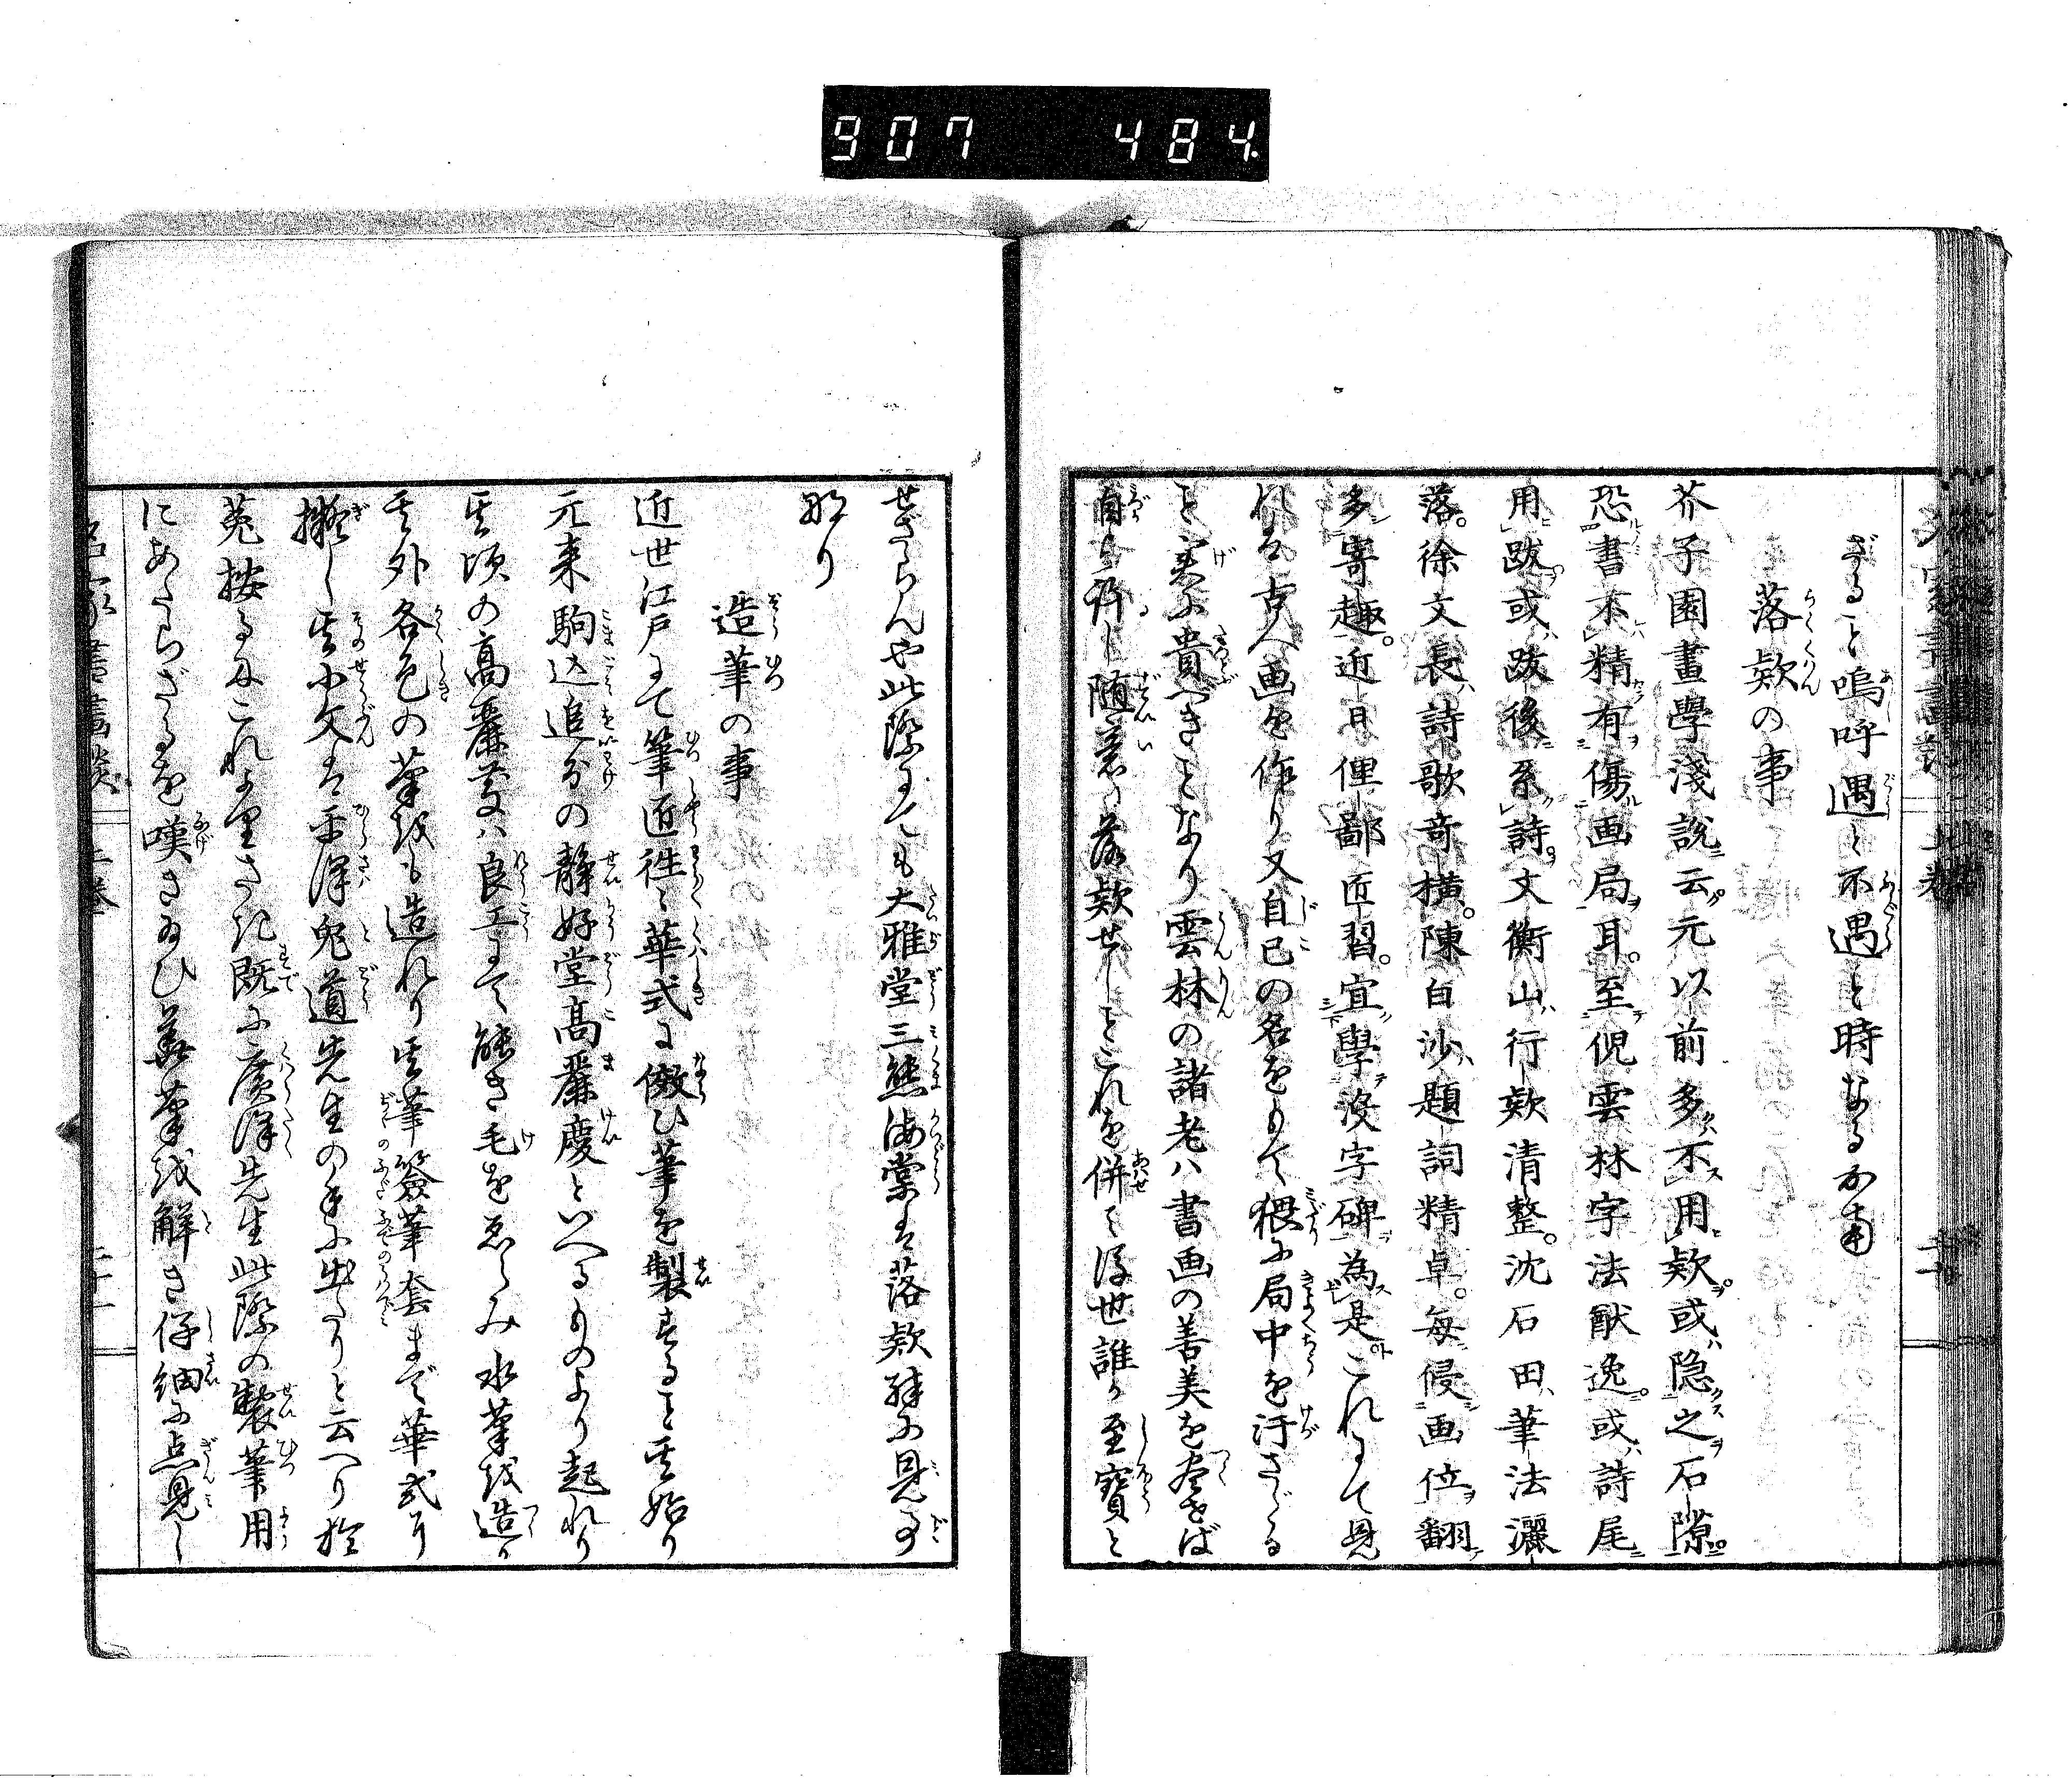 907 484
ざること嗚呼遇と不遇と時なるかな
落欵の事
芥子園畫學淺説云元以前多不用欵或隐之石隙
恐書不精有傷画局耳至倪雲林字法猷逸或詩尾
用跋或跋後系詩文衡山行欵清整沈石田筆法灑
落徐文長詩歌竒横陳白沙題詞精卓毎侵画位翻
多竒趣近日俚鄙匠習宜學没字碑為是これにて見
れば古人画を作り又自己の名をもて猥に局中を汚さゞる
こと実に貴べきことなり雲林の諸老ハ書画の善美を尽せば
自ら許し随意に落欵せしとこれを併て後世誰か至寳と
せざらんや此際にても大雅堂三熊海棠は落欵殊に見事
なり
造筆の事
近世江戸にて筆匠往〻華式に倣ひ筆を製すること其始り
元来駒込追分の静好堂高麗慶といへるものより起れり
其頃の高麗慶ハ良工にて能き毛をゑらみ水筆を造り
其外各色の筆をも造れり其筆簽筆套まで華式に
擬し其小文は平澤兎道先生の手に出たりと云へり於
菟按るにこれより さき既に廣澤先生此際の製筆用
にあたらざるを嘆き給ひ華筆を解き仔細に点見し
名家書畫談 上卷 二十一